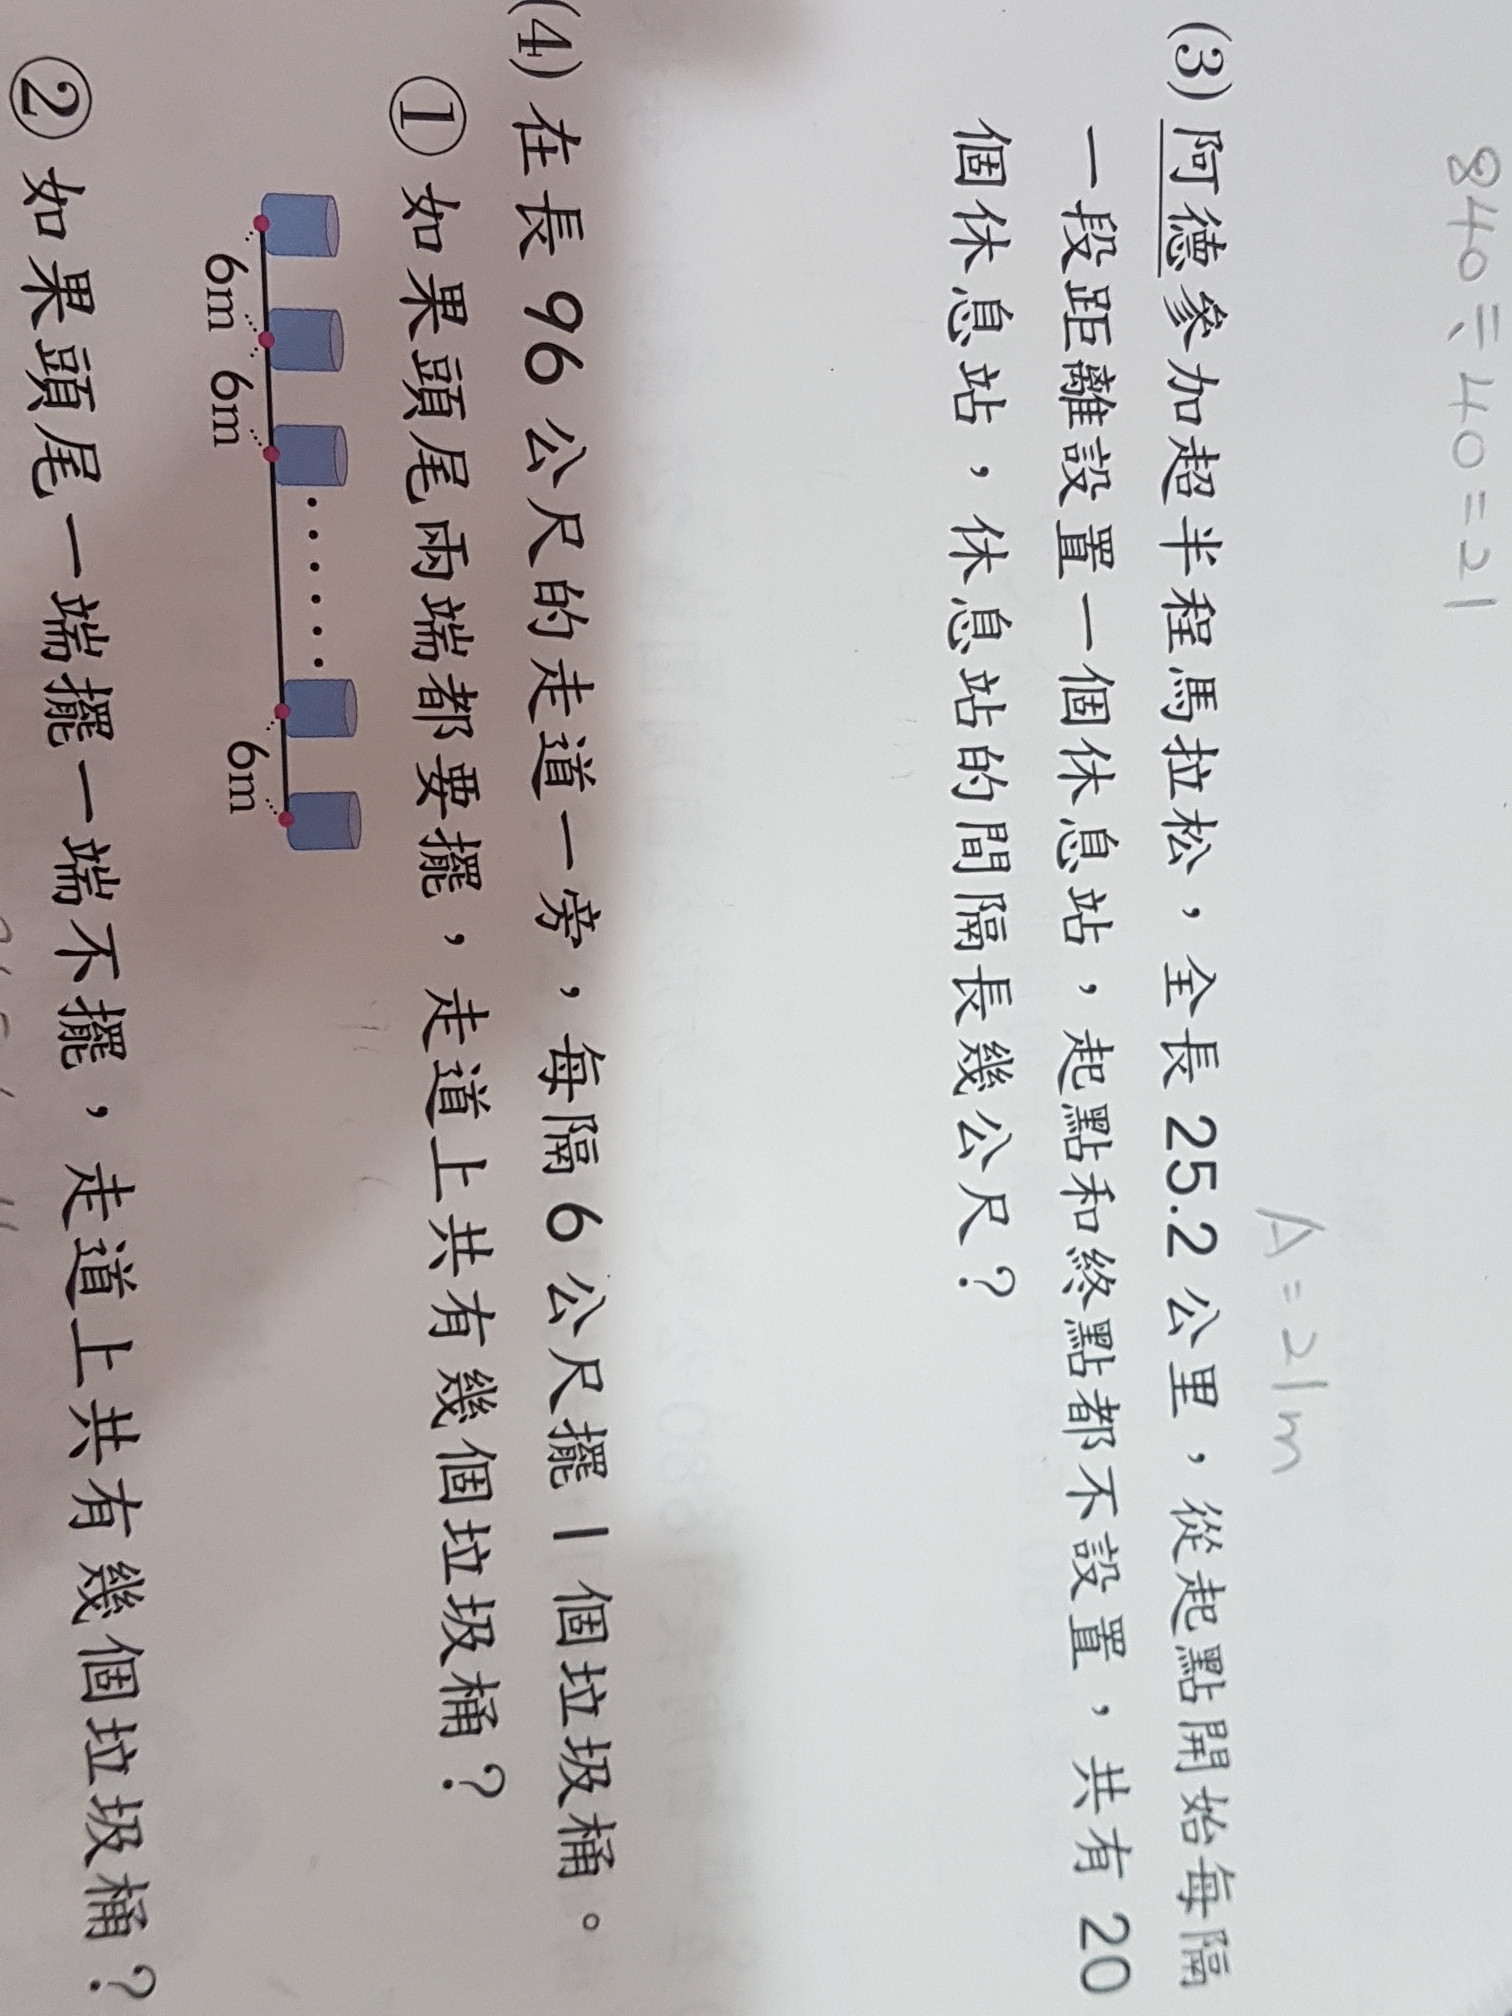 840÷40=21
A=21m
(3) 阿德參加超半程馬拉松，全長 25.2 公里，從起點開始每隔
一段距離設置一個休息站，起點和終點都不設置，共有 20
個休息站，休息站的間隔長幾公尺？
(4) 在長 96 公尺的走道一旁，每隔 6 公尺擺 1 個垃圾桶。
① 如果頭尾兩端都要擺，走道上共有幾個垃圾桶？
6m 6m 6m
② 如果頭尾一端擺一端不擺，走道上共有幾個垃圾桶？